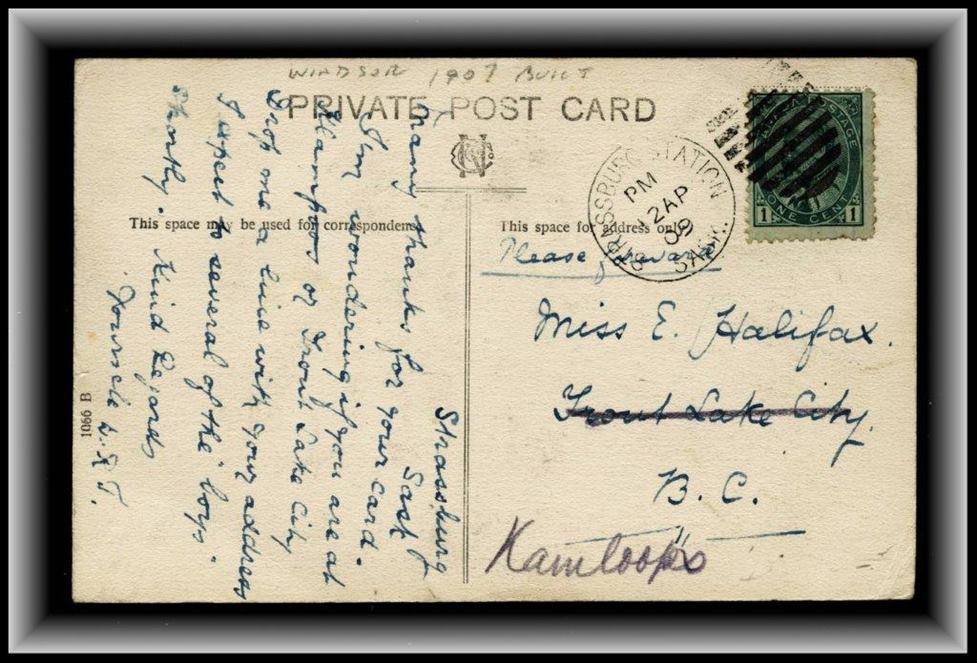 WINDSOR 1907 BUILT
PRIVATE POST CARD
This space may be used for correspondence
This space for address only
STRASSBURG STATION
PM
12 AP
09
SASK.
CANADA POSTAGE
1 ONE CENT 1
Please forward
Miss E. Halifax.
Trout Lake City.
B. C.
Kamloops
Strassburg
Sask
Many thanks for your card.
Am wondering if you are at
Kamloops or Trout Lake City
Drop me a line with your address
I expect to several of the "boys"
shortly. Kind Regards
Yours
1066 B